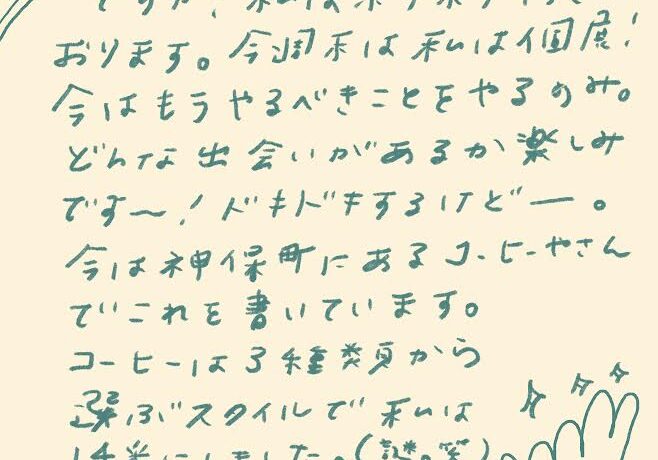 ですか！私は
おります。今週末は私は個展！
今はもうやるべきことをやるのみ。
どんな出会いがあるか楽しみ
です〜！ドキドキするけどー。
今は神保町にあるコーヒーやさん
でこれを書いています。
コーヒーは3種類から
選ぶスタイルで私は
にしました。(謎。笑)